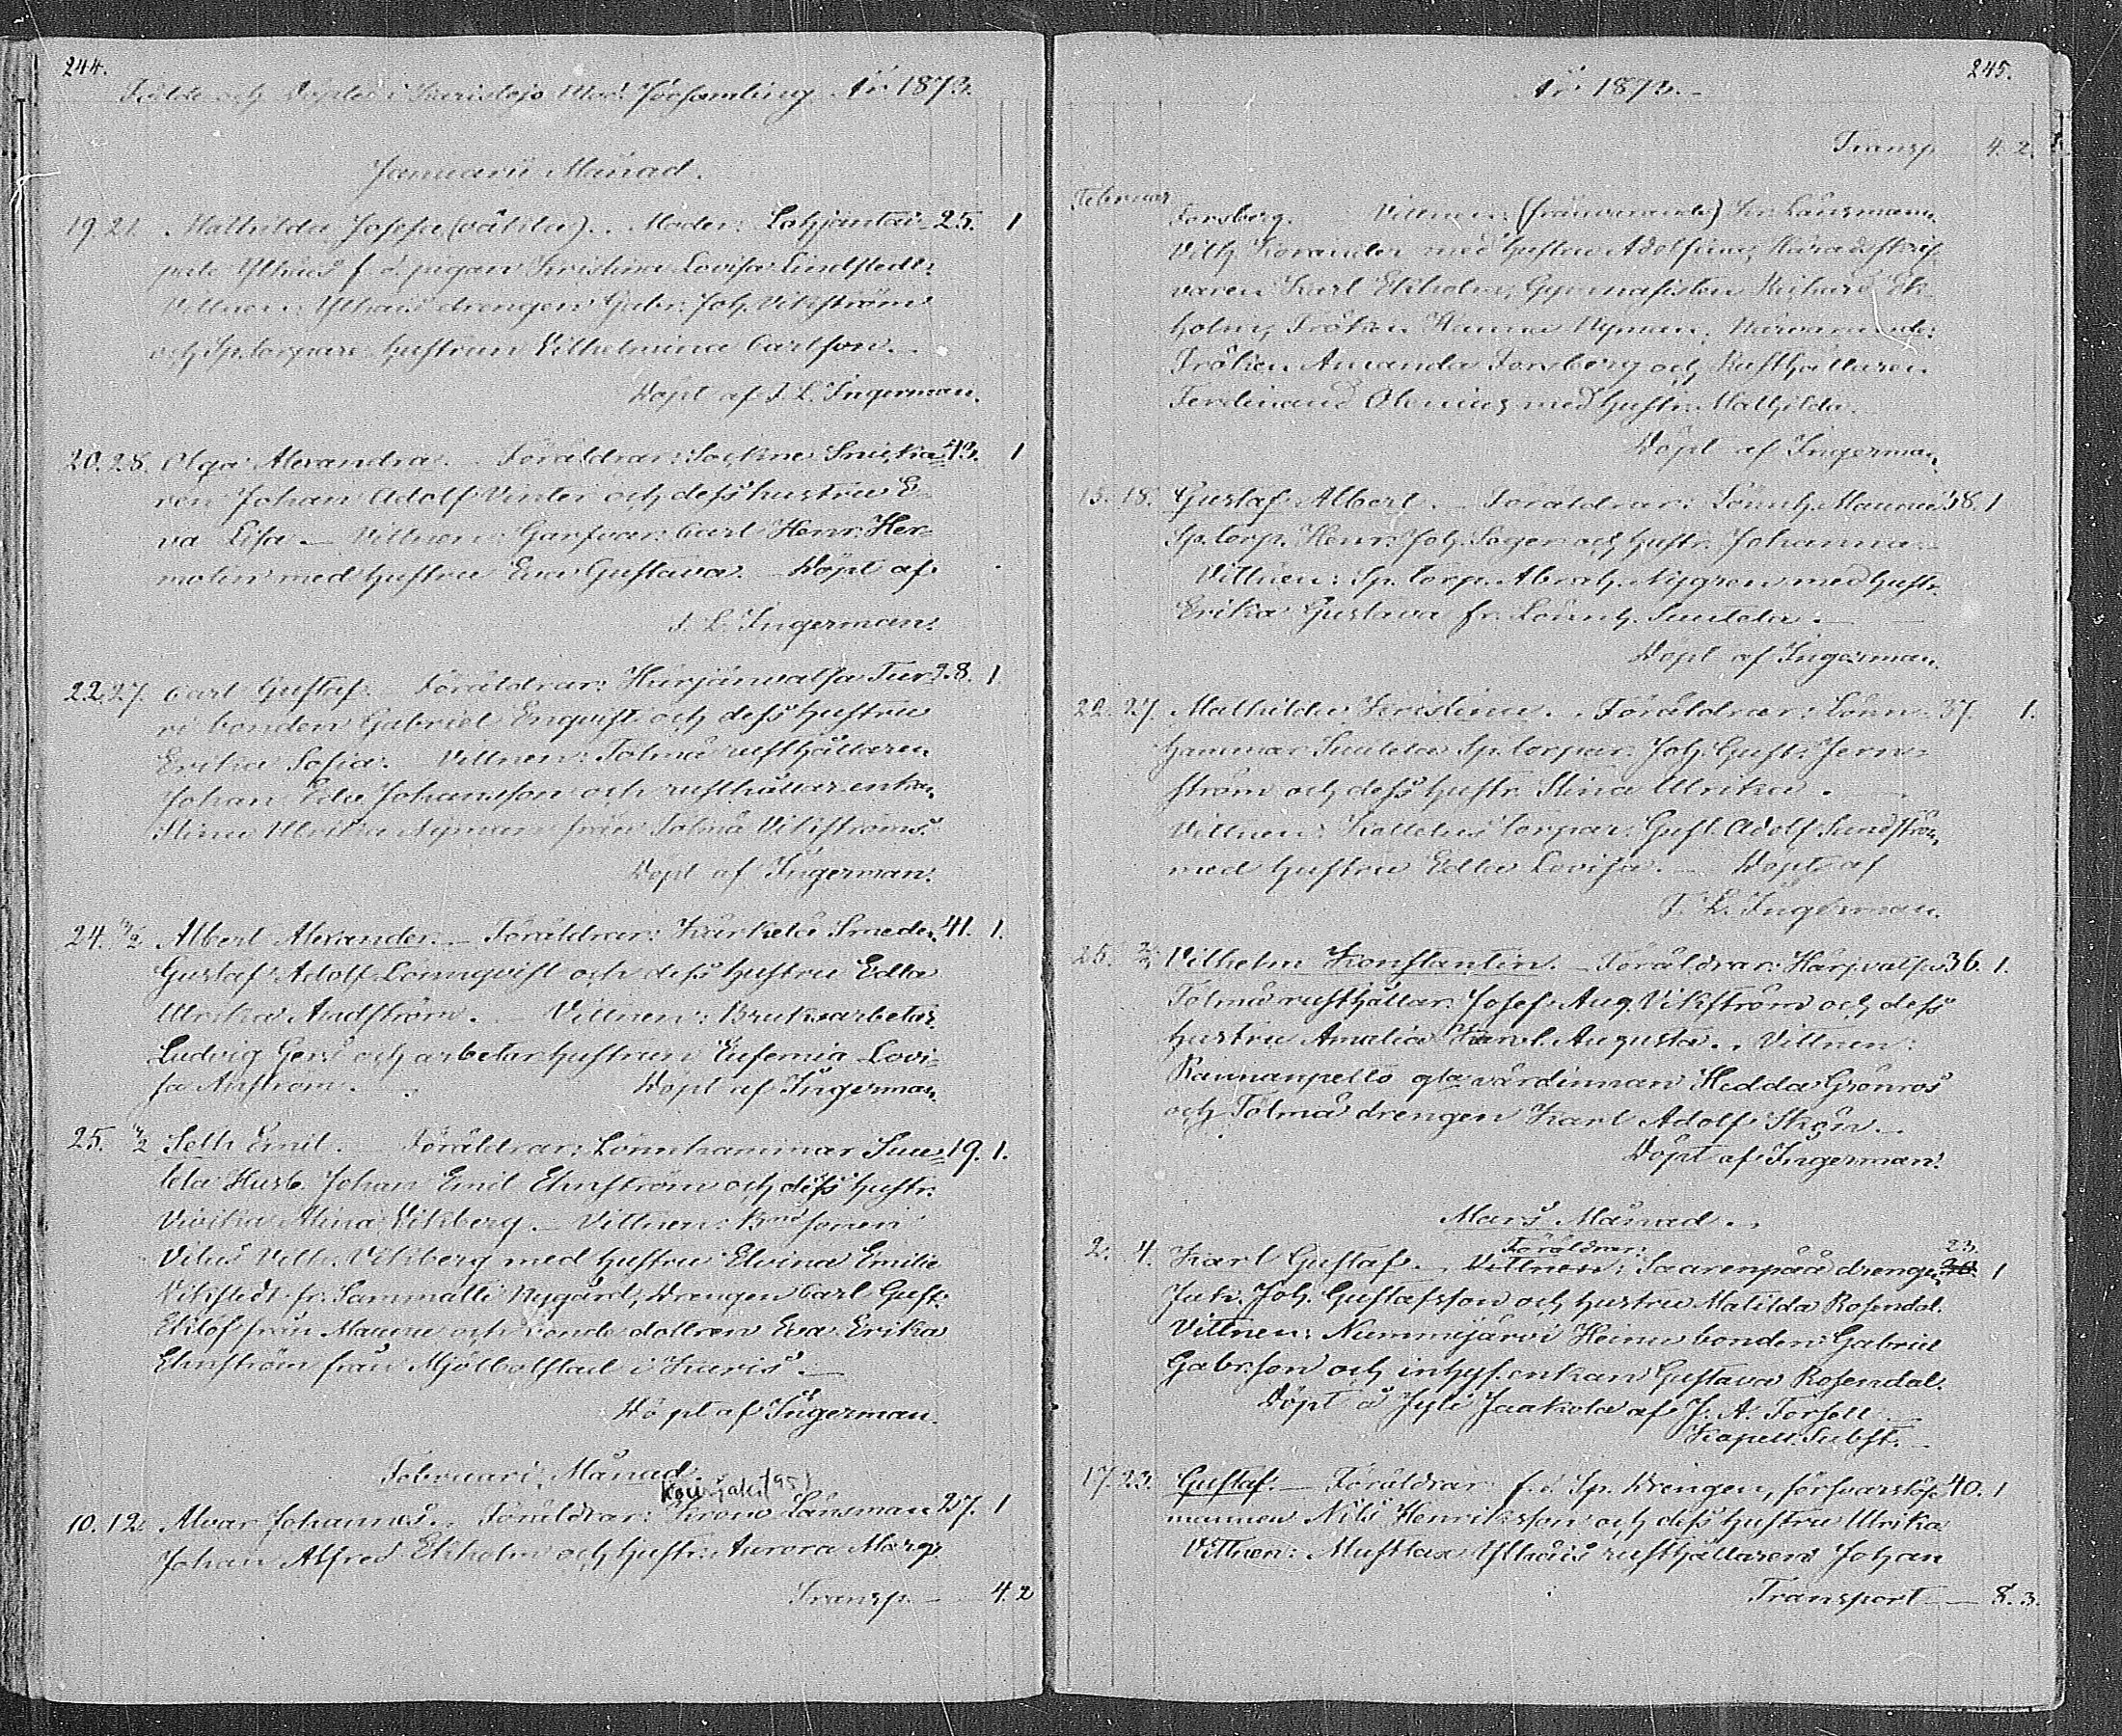 244.
Födde och Döpte i Karislojo Mod. Församling År 1873.
Januarii Månad.
19. 21. Mathilda Josefa (oäkta). Moder: Lohjantai- 25. 1
pale Ylhäis f. d. pigan Kristina Lovisa Lindstedt.
Vittnen: Ylhäis drengen Gabr. Joh. Vikström
och Sp.torpare hustrun Vilhelmina Carlson.
Döpt af F. L. Ingerman.
20. 28. Olga Alexandra. Föräldrar: Sockne Snicka= 43. 1
ren Johan Adolf Vinter och dess hustru E-
va Lisa. Vittnen: Garfvar. Carl Henr. Her-
molin med hustru Eva Gustava. Döpt af
F. L. Ingerman.
22. 27. Carl Gustaf. Föräldrar: Härjänvatsa Tur- 28. 1.
ri bonden Gabriel Enqvist och dess hustru
Erika Sofia. Vittnen: Tolmä rusthållaren
Johan Johansson och rusthållar enkan
Stina Ulrika Nyman från Tolmä Vikströms.
Döpt af Ingerman.
24. 4/2 Albert Alexander. Föräldrar: Kärkelä Smeden 41. 1.
Gustaf Adolf Lönnqvist och dess hustru Edla
Ulrika Andström. Vittnen: Bruksarbetar.
Ludvig Gers och arbetar hustrun Eufemia Lovi-
sa Anström. Döpt af Ingerman.
25. 4/2 Seth Emil. Föräldrar: Lönnhammar Suu= 19. 1.
tela Husb. Johan Emil Ehnström och dess hustr.
Vivika Mina Vikberg. Vittnen: sonen
Vilh. Vikberg med hustru Elvina Emilie
Vikstedt fr. Sammatti Nygård, Drengen Carl Gust.
Eklöf från Maunu och bonde dottren Eva Erika
Ehnström från Mjölbolstad i Karis.
Döpt af Ingerman.
Februari Månad.
10. 12. Alvar Johannes. Föräldrar: Krono Länsman 27. 1
Johan Alfred Ekholm och hustr. Aurora Marg.
Transp. 4. 2
245.
År 1873.
Transp. 4. 2.
Februar
Forsberg. Vittnen: (frånvarande) Kr. Länsmann.
Vilh. Korander med hustru Adolfina, Häradsskrif-
varen Karl Ekholm, Gymnasisten Rickard Ek-
holm, Fröken Hanna Nyman, Närvarande:
Fröken Amanda Forsberg och Rusthållaren
Ferdinand Olenius med hustr. Mathilda.
Döpt af Ingerman.
15. 18. Gustaf Albert. Föräldrar: Lönnh. Maunu 38. 1
Sp.torp. Henr. Joh. Sager och hustr. Johanna
Vittnen: Sp. torp. Abrah. Nygren med hustr.
Erika Gustava fr. Lönnh. Suutela.
Döpt af Ingerman.
22. 27. Mathilda Kristina. Föräldrar: Lönn- 37. 1.
hammar Suutela Sp.torpar. Joh. Gust. Jern-
ström och dess hustr. Stina Ulrika.
Vittnen: torpar. Gust. Adolf Sundström
med hustru Edla Lovisa. Döpt af
F. L. Ingerman.
25. 2/3 Vilhelm Konstantin. Föräldrar: Härj.vatsa 36. 1.
Tolmä rusthållar. Josef Aug. Vikström och dess
hustru Amalia Karol. Augusta. Vittnen:
Raunanpelto gla värdinnan Hedda Grönros
och Tolmä drengen Karl Adolf Skön.
Döpt af Ingerman.
Mars Månad.
Föräldrar: 23.
2. 4. Karl Gustaf. Vittnen: Saarenpää drengen 1
Joh. Gustafsson och hustru Matilda Rosendal.
Vittnen: Nummijärvi Heinu bonden Gabriel
Gabr.son och inhys.enkan Gustava Rosendal.
Döpt å Jyli Jaakola af J. A. Forsell
Kapell. Subst.
17. 23. Gustaf. Föräldrar f. d. Sp. Drengen, försvarslöse 40. 1
mannen Nils Henriksson och dess hustru Ulrika
Vittnen: Mustlax Ylhäis rusthållaren Johan
Transport 8. 3.